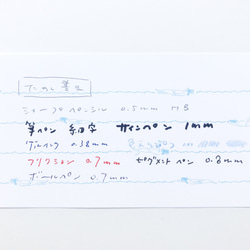 シャープペンシル 0.5mm HB
筆ペン 細字 サインペン 1mm
ゲルインク 0.38mm
フリクション 0.7mm ピグメントペン 0.8mm
ボールペン 0.7mm